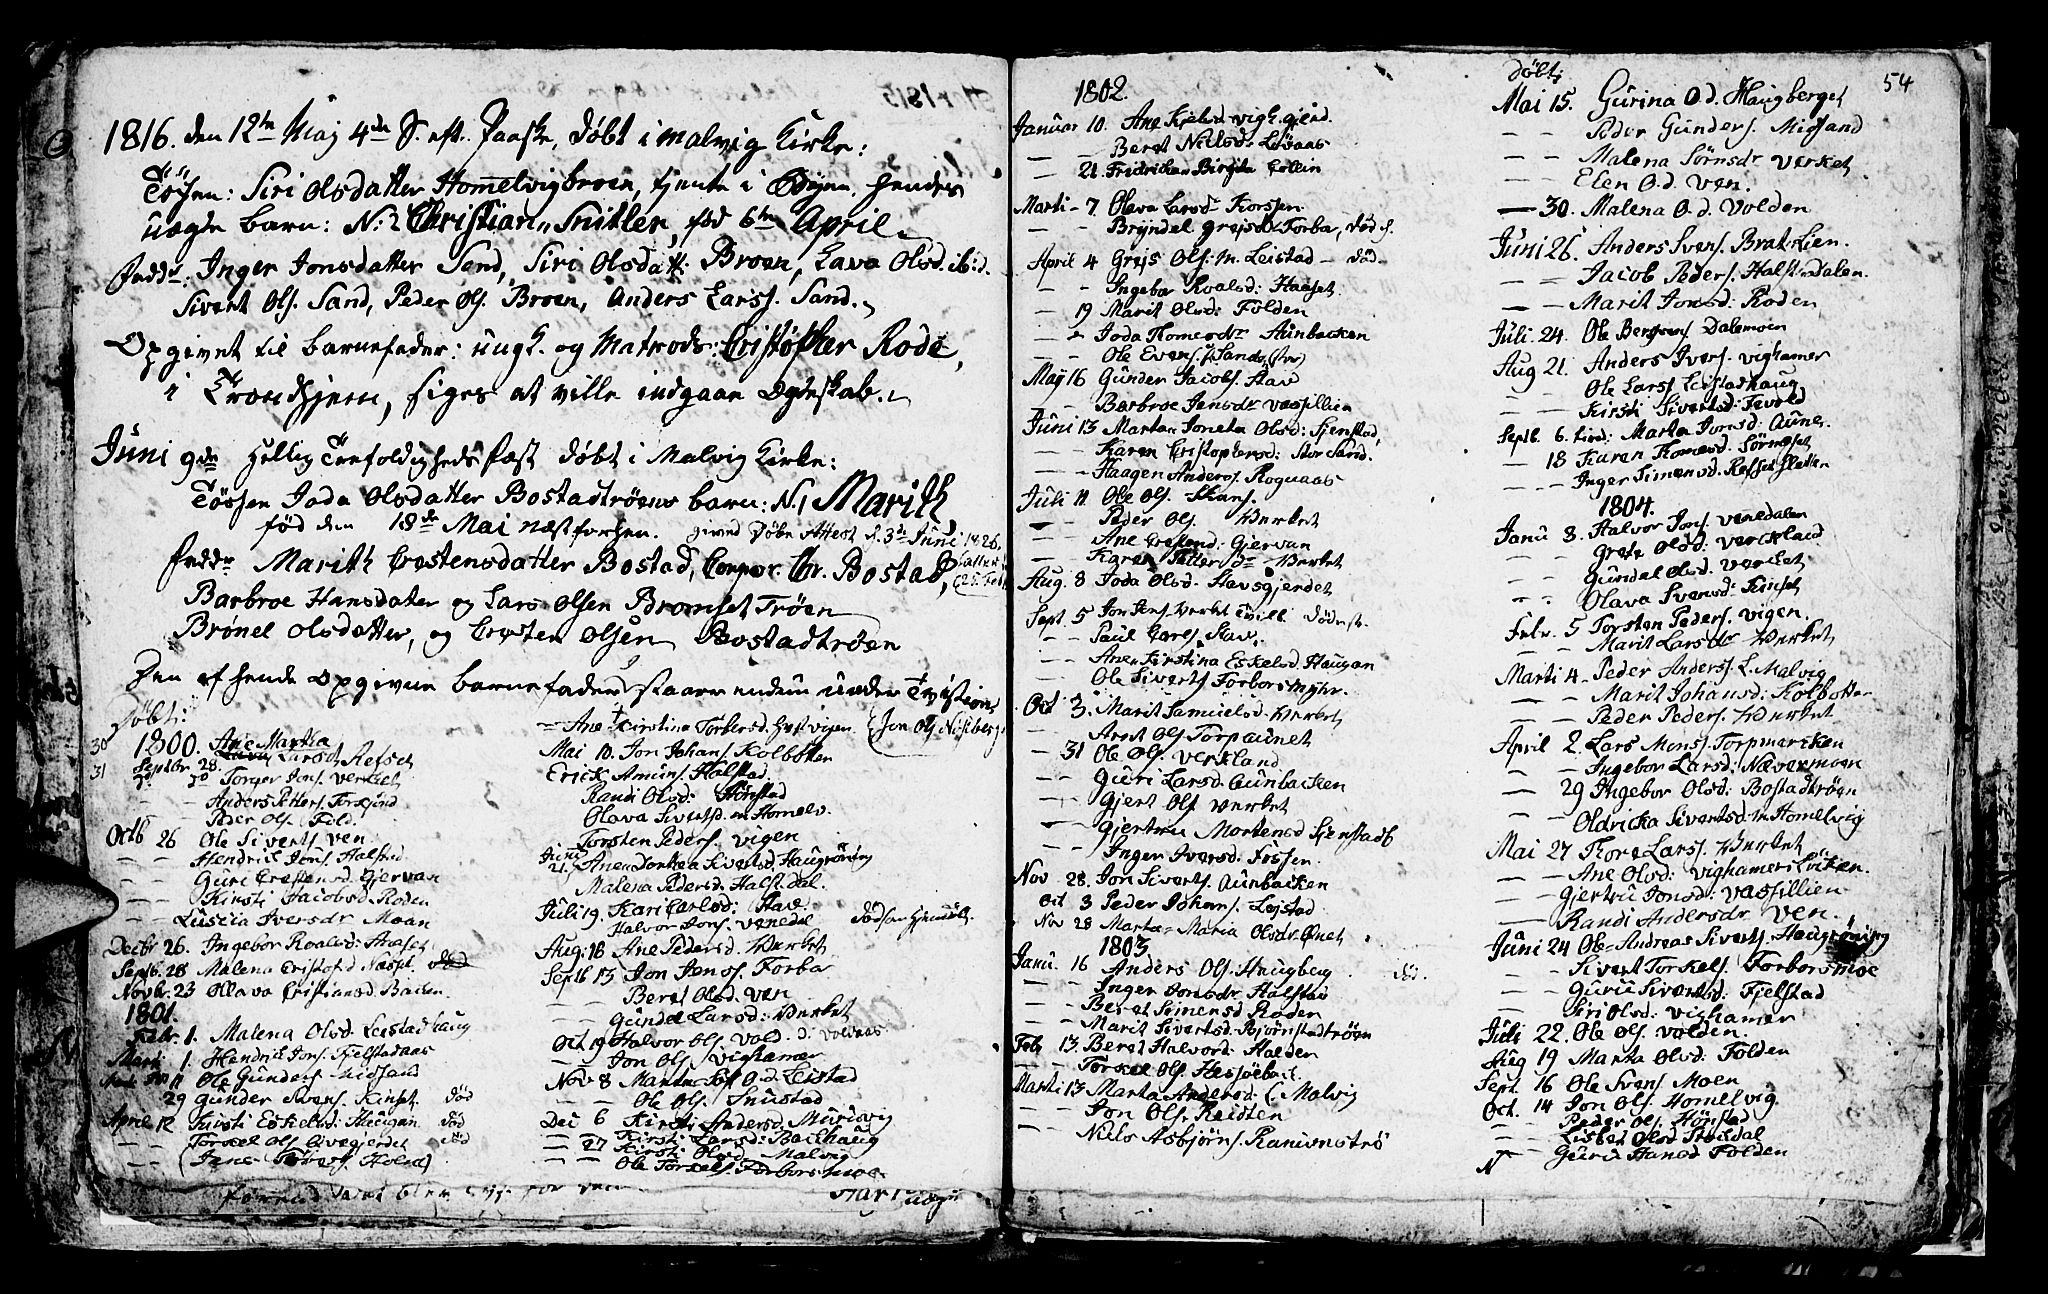 1816. den 12te Maj 4de S. eft. Paaske, døbt i Malvig Kirke:
Tøsen: Siri Olsdatter Hommelvigbroen, tjente i Byen. hendes
uægte barn: N. 2 Christian Snitler, fød 6te April.
Fadd: Inger Jonsdatter Sand, Siri Olsdatt: Broen, Lava Olsd. ibid.
Sivert Ols. Sand, Peder Ols. Broen, Anders Larss. Sand.
Opgivet til barnefader: ungk. og Matrods: Cristøpher Rode,
i Trondhjem, siges at ville indgaae Ægteskab.
Juni 9de Hellig Trefoldigheds Fæst døbt i Malvig Kirke:
Tøssen Joda Olsdatter Bostadtrøens barn: N. 1 Marith
fød den 18de Mai næstforhen. given Døbe Attest d. 3de Juni 1826.
Faddr Marith Crestensdatter Bostad, Corpor. Chr. Bostad,
Barbroe Hansdatter og Lars Olsen Bromset Trøen
Brønel Olsdatter, og Cresten Olsen Bostadtrøen
Den af hende Opgivne barnefader staaer endnu under Tvistion
Døbt:
30 1800. Ane Martha
31 Septbr 28. Larsdt Refset
Torger Jons. Verket
- - Anders Petters.
- - Peder Ols. Fold.
Octb 26 Ole Siverts. Ven
- - Hendrik Jons. Halstad
- - Guri Crestensd. Gjervan
- - Kirsti Jacobsd. Roden
- - Luscia Iversdr Moan
Decbr 26. Ingebor Roalsd: Haaset
Septb. 28 Malena Cristofd død
Novbr. 23 Ollava Cristiansd. Backen.
1801.
Febr. 1. Malena Olsd. Leistadhaug
Marti 1. Hendrik Jons. Fjelstadaas
11 Ole Gunders. Midsand
29 Gunder Svens. Kinset. død
April 12 Kirsti Eskelsd: Haugan død
- - Torkel Ols død
- - (Jens
- Ane Kirstina Torbersd. Hestvigen. (Jon Ols.
Mai 10. Jon Johans. Kolbotten
Erick Amuns. Halstad.
Randi Olsd: Hønstad
Olava Sivertsd. Homelv.
Torsten Peders. Vigen
Juni 21. Ane Dorthea Sivertsd. Haugrøning
Malena Pedersd. Halst.dal.
Juli 19. Kari Carlsd: Stav.
Halvor Jons. Venedal død
Aug: 16 Ane Pedersd. Verket
Septb 13 Jon Jenss. Forba
- - Beret Olsd. Ven
- - Gundel Larsd: Verket
Oct 19 Halvor Ols. Vold. d. Voldaas
- - Jon Ols. Vighamer
Nov 8 O. d. Leistad
- - Ole Ols. Snustad
Dec 6 Kirsti Andersd. Murvig
- - Kirsti Larsd: Backhaug
- 27 Kirsti Olsd. Malvig
Ole Torkels. Forborsmoe
1802.
Januar 10. Ane Kjelsd. vigh.gjerd.
- - Beret Nielsd: Løvaas
- 21. Fredricka Birgita Collin
Marti - 7. Olava Larsd. Korssen.
- - Bryndel Grejsdr Forba, død
April 4 Grejs Ols. M. Leistad - død
- - Ingebor Roalsd: Haaset.
- 19 Marit Olsd: Folden
- - Joda Thomesdr Aunbacken
- - Ole Evens. Sands (stor)
Maj 16 Gunder Jacobs. Stav
- - Barbroe Jensdr Vassillien
Juni 13 Marta Joneta Olsd: Sjenstad,
- - Karen Cristophersd: Stor Sand.
- - Haagen Anders. Rognaas
Juli 11 Ole Ols. Skans.
- - Peder Ols. Verket
- - Ane Crestensd: Gjervan
- - Karen Petters dr Verket
Aug 8 Joda Olsd. Stavsgjerdet
Sept. 5 Jon Jens. Verket Tvill.
- - Paul Carls. Stav.
- - Ane Kirstina Eskelsd. Haugan
- - Ole Siverts. Forborsmyhr.
Oct 3. Marit Samuelsd. Verket
- - Arnt Ols. Torpaunet
- 31 Ole Ols. Verkland
- - Guri Larsd. Aunbacken
- - Gjert Ols. Verket
- - Gjertru Mortensd. Sjenstadb
- - Inger Iversd: Fossen.
Nov 28. Jon Siverts. Aunbacken
Oct 3 Peder Johans. Leistad.
Nov 28 Marta-Maria Olsdr Ønet
1803.
Janu. 16 Anders Ols. Haugberg. dø.
- - Inger Jonsdr Halstad
- - Beret Simensd Roden
- - Marit Sivertsd. Bjørnstadtrøen
Feb 13. Beret Halvord: Halden
- - Torkel Ols.
Marti 13 Marta Andersd. L. Malvig
- - Jon Ols. Reidten
- - Niels Asbjørns. Ranumstrø
54
Døbt:
Mai 15. Gurina O. d. Haugberget
- - Peder Gunders. Midsand
- - Malena Sørnsdr Verket
- - Elen O. d. Ven.
- 30. Malena O. d. Volden
Juni 26. Anders Svens. Bratlien.
- - Jacob Peders. Halstendalen.
- - Marit Jonsd: Roden
Juli 24. Ole Bersvens. Dalemoen
Aug 21. Anders Ivers. Vighamer
- - Ole Larss Leistadhaug
- - Kirsti Sivertsd: Fevold
Septb. 6. Marta Jonsd: Aunet.
- 18 Karen Thomesd. Sørnæset
- - Inger Simensd. Refsetsletten
1804.
Janu 8. Halvor Jons. Venedalen
- - Grete Olsd: Verckland
- - Gundel Olsd. Verket
- - Olava Svensd: Kinset
Febr. 5 Torsten Peders. Vigen
- - Marit Larsdr Verket
Marti 4. Peder Anders. L. Malvig
- - Marit Johansd: Kolbotten
- - Peder Peders. Verket
April 2. Lars Monss. Torpmarcken
- - Ingebor Larsd: Nævermoen
- 29 Ingebor Olsd: Bostadtrøen
- - Oldricka Sivertsd. Homelvig
Mai 27 Thore Larss. Verket
- - Ane Olsd: Vighamersløkken.
- - Gjertru Jonsd: Vassillien
- Randi Andersdr. Ven.
Juni 24 Ole-Andreas Siverts. Haugrøning
- - Sivert Torkels. Forborsmoe
- - Guru Sivertsd: Fjelstad
- - Siri Olsd: Vighamer
Juli 22. Ole Ols. Volden.
Aug 19 Marta Olsd: Folden
Sept. 16 Ole Svens. Moen
Oct. 14 Jon Ols. Homelvig.
- - Peder Ols. Hønstad
- - Lisbet Olsd Stokdal
- - Guru Hansd Folden